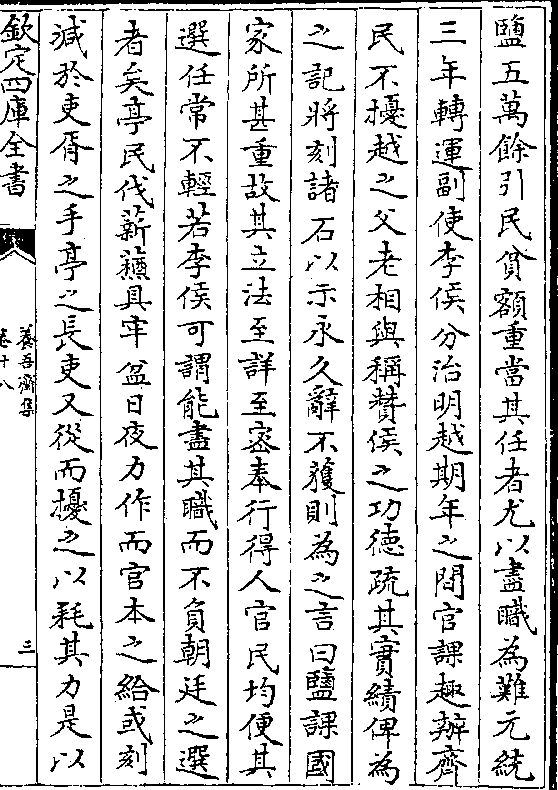 鹽五萬餘引民貧額重當其任者尤以盡職為難元統
三年轉運副使李侯分治明越期年之間官課趣辦齊
民不擾越之父老相與稱贊侯之功德疏其實績俾為
之記將刻諸石以示永久辭不獲則為之言曰鹽課國
家所甚重故其立法至詳至密奉行得人官民均便其
選任常不輕若李侯可謂能盡其職而不負朝廷之選
者矣亭民伐薪䕩具牢盆日夜力作而官本之給或刻
減於吏胥之手亭之長吏又從而擾之以耗其力是以
欽定四庫全書
養吾齋集
卷十八
三